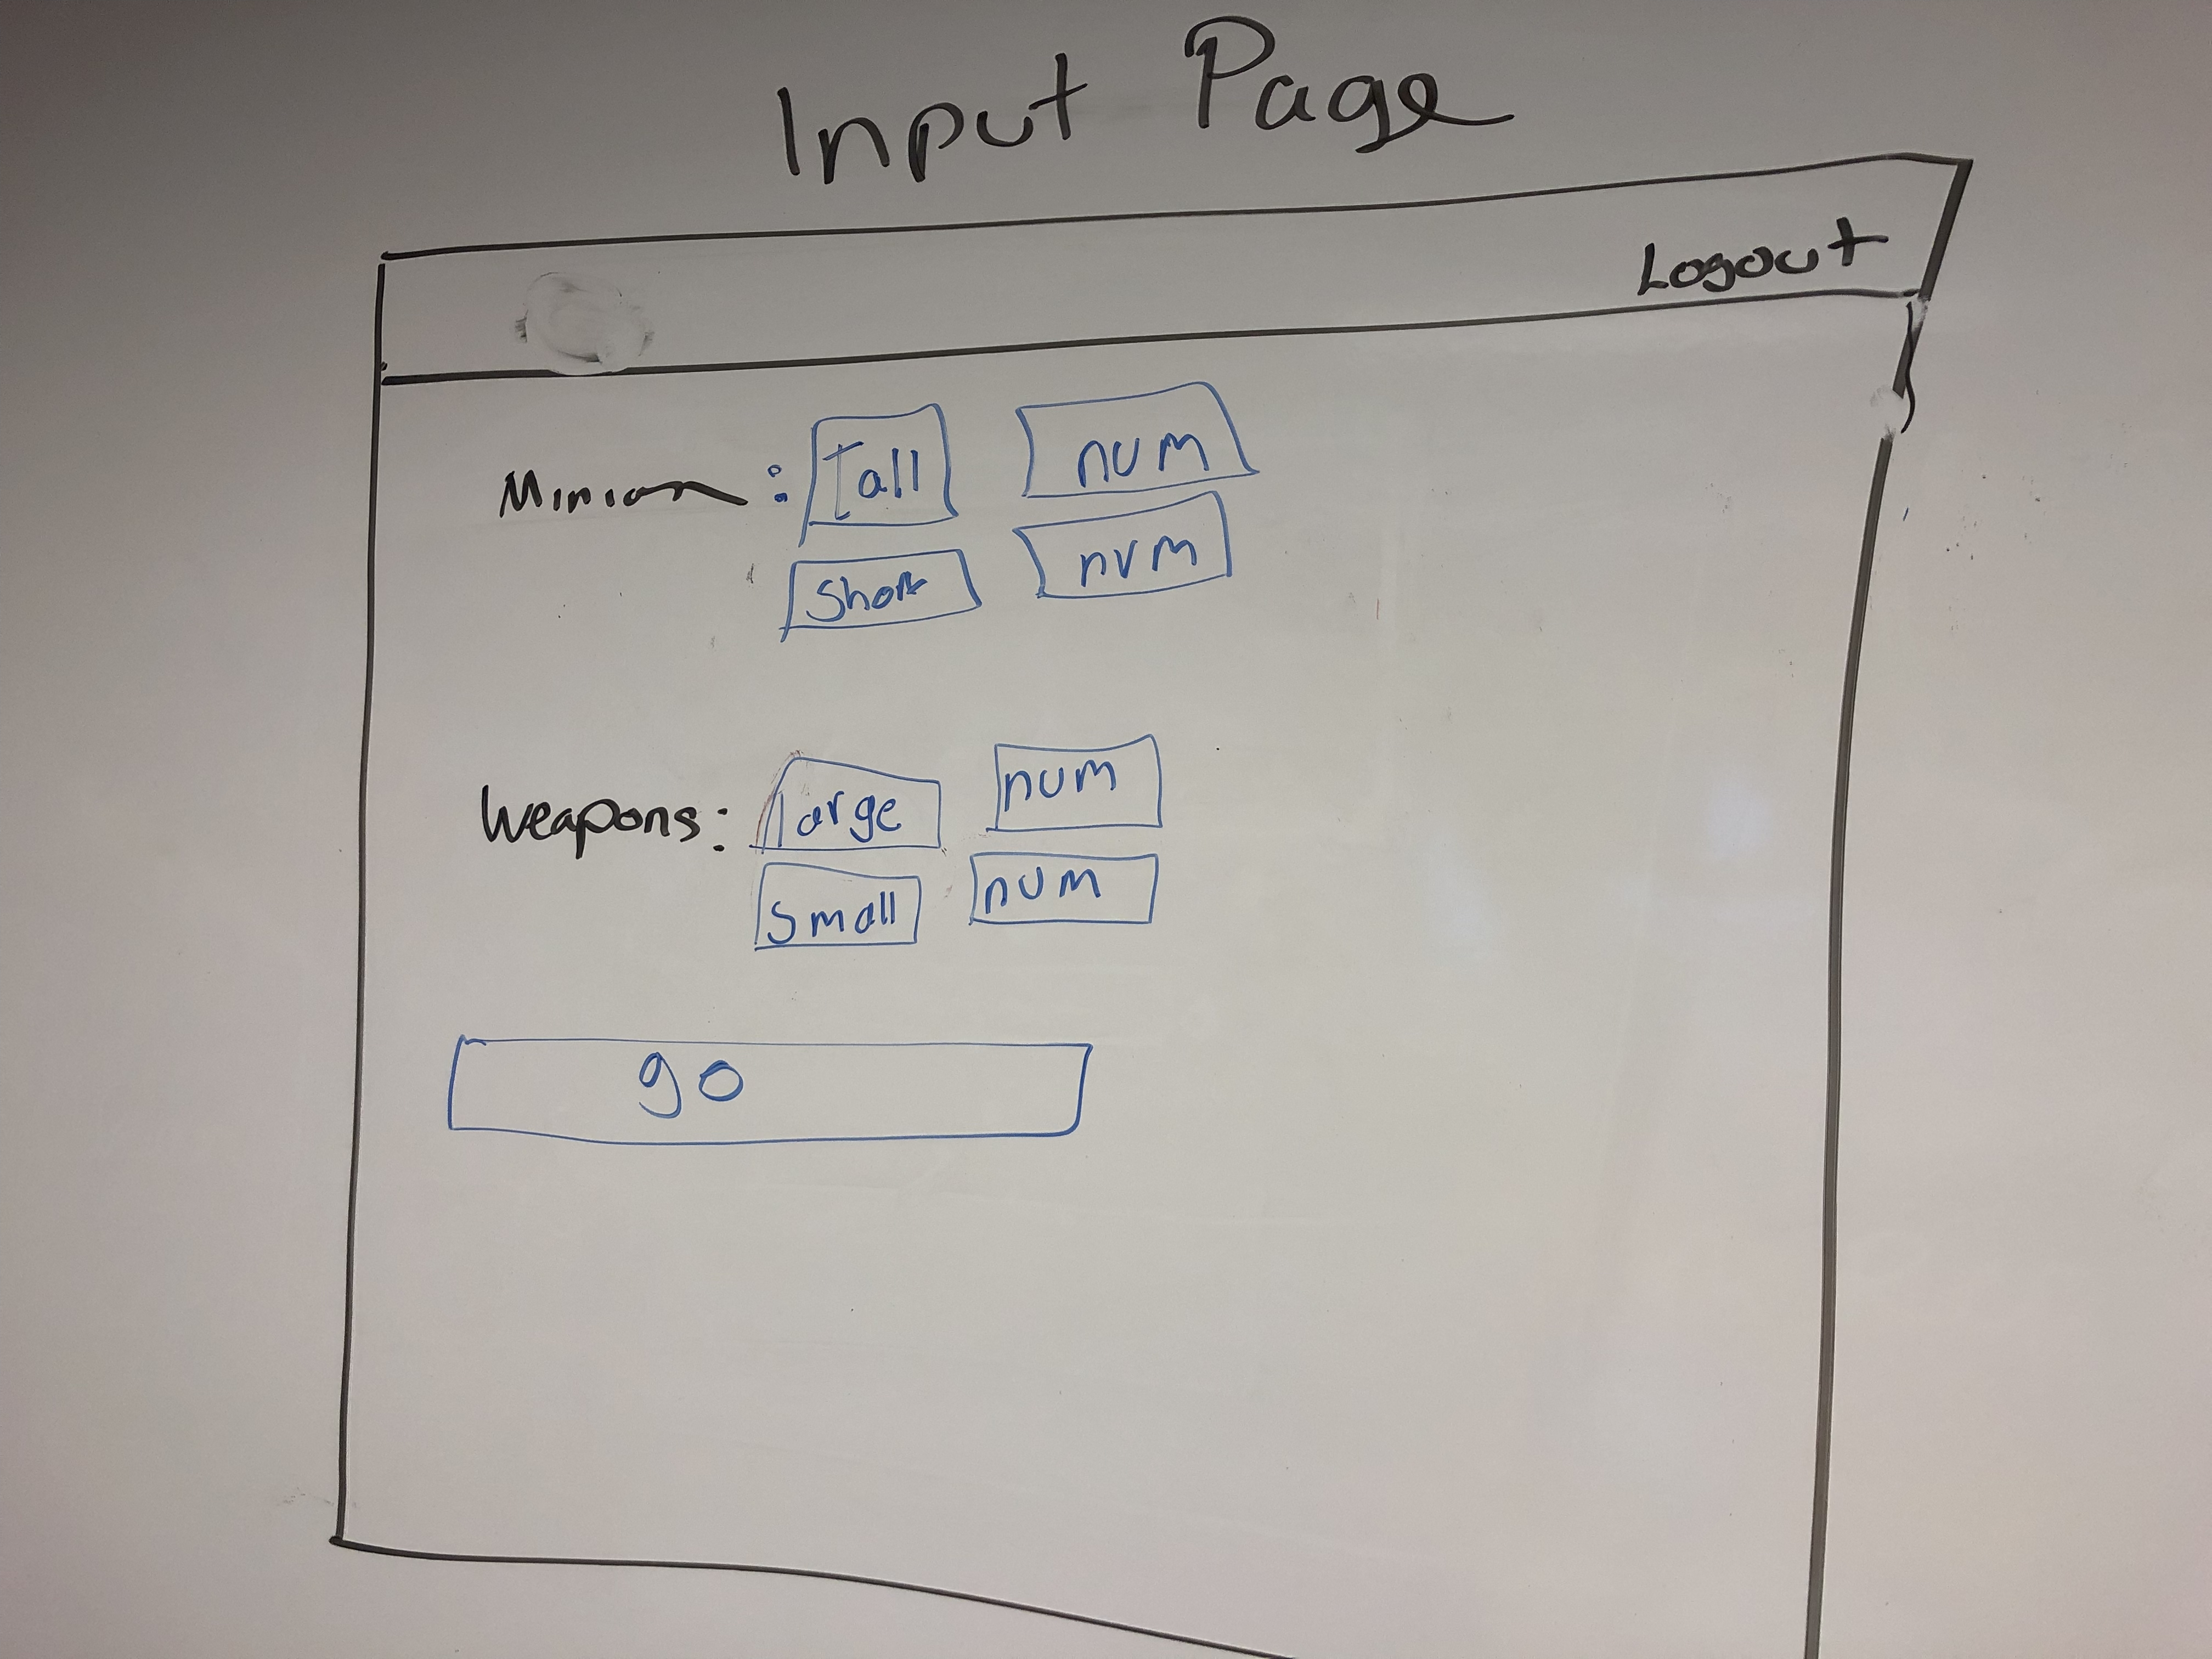 Input Page
Logout
Minion : Tall num
Short num
Weapons: large num
Small num
go